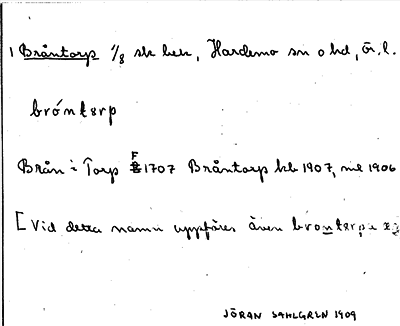 1 Bråntorp 1/8 sk hek, Hardemo sn o hd, Ör. l.
bróntɛrp
Brån i Torp F 1707 Bråntorp kb 1907, ml 1906
[Vid detta namn uppföres även brontɛrpa
JÖRAN SAHLGREN 1909